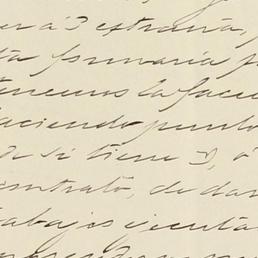 er á 3 estraña,
ta formaria p
tenemos la facu
haciendo punto
de si tiene 3, ó
contrato, de dar
trabajos ejecuta